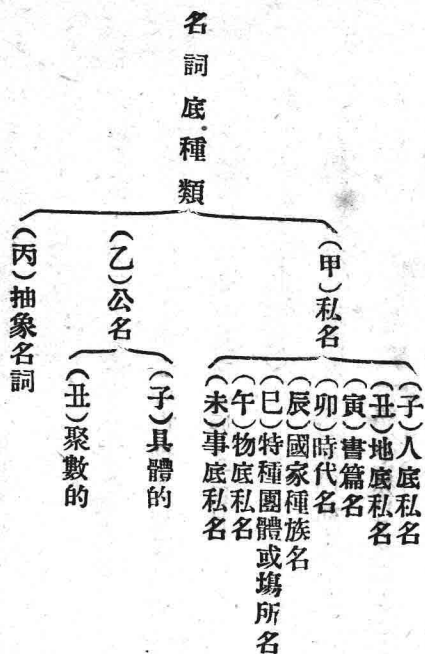 名詞底種類
（甲）私名
（子）人底私名
（丑）地底私名
（寅）書篇名
（卯）時代名
（辰）國家種族名
（巳）特種團體或塲所名
（午）物底私名
（未）事底私名
（乙）公名
（子）具體的
（丑）聚數的
（丙）抽象名詞